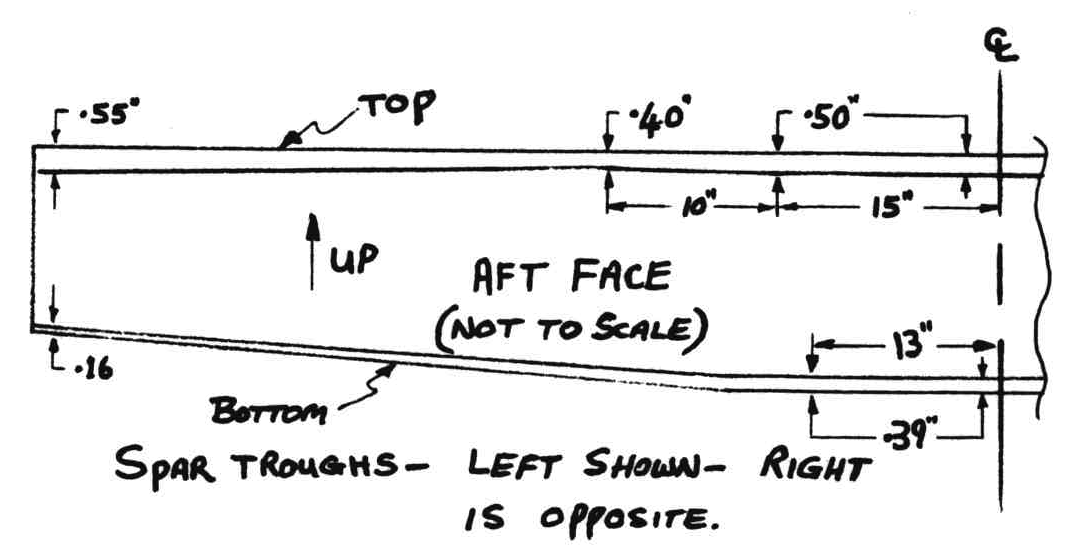 ℄
.55"
TOP
.40"
.50"
10"
15"
UP
AFT FACE
(NOT TO SCALE)
13"
.16
BOTTOM
.39"
SPAR TROUGHS- LEFT SHOWN- RIGHT
IS OPPOSITE.